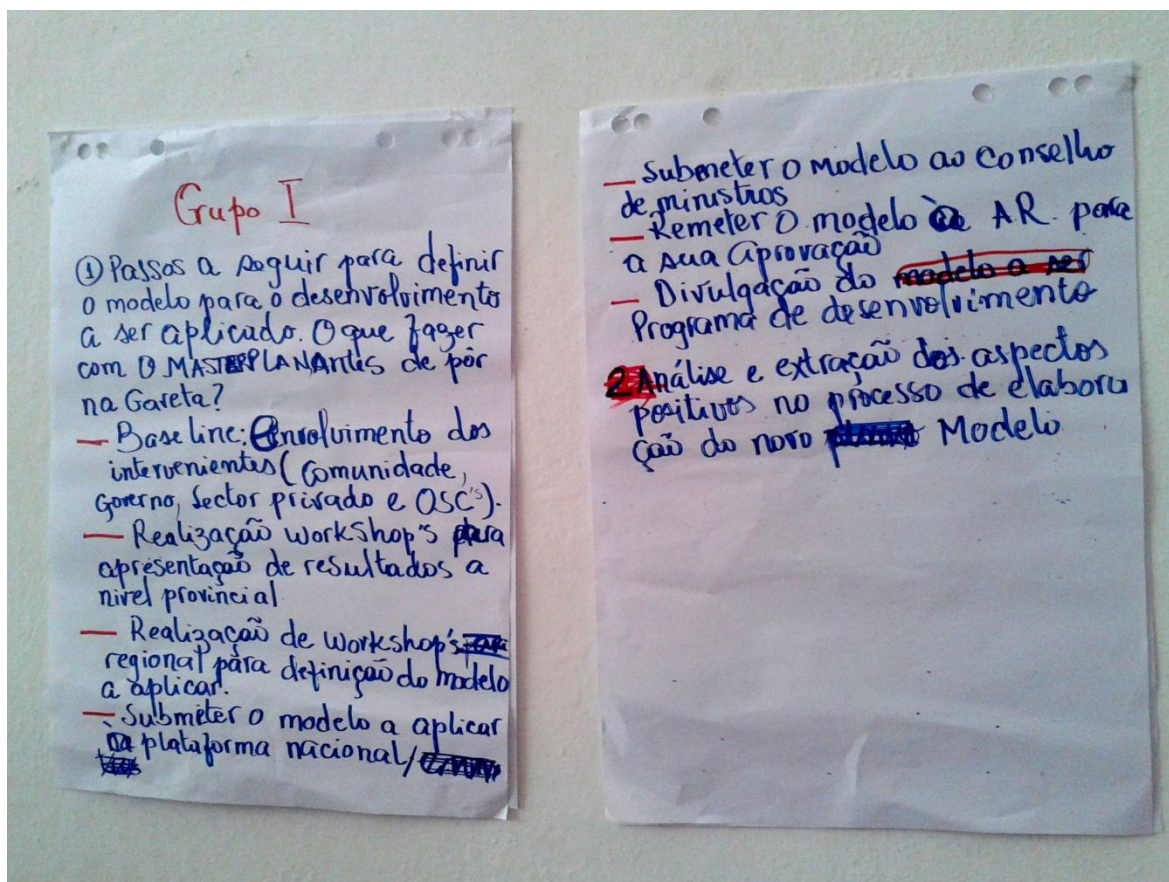 Grupo I
① Passos a seguir para definir
o modelo para o desenvolvimento
a ser aplicado. O que fazer
com O MASTERPLAN Antes de pôr
na Gareta?
— Base line: Envolvimento dos
intervenientes (Comunidade,
Governo, Sector privado e OSC's).
— Realização workshop's para
apresentação de resultados a
nivel provincial
— Realização de workshop's
regional para definição do modelo
a aplicar.
— Submeter o modelo a aplicar
na plataforma nacional/
— Submeter o modelo ao Conselho
de ministros
— Remeter o modelo à AR. para
a sua aprovação
— Divulgação do modelo a ser
Programa de desenvolvimento
2 Análise e extração dos aspectos
positivos no processo de elabora
ção do novo Modelo